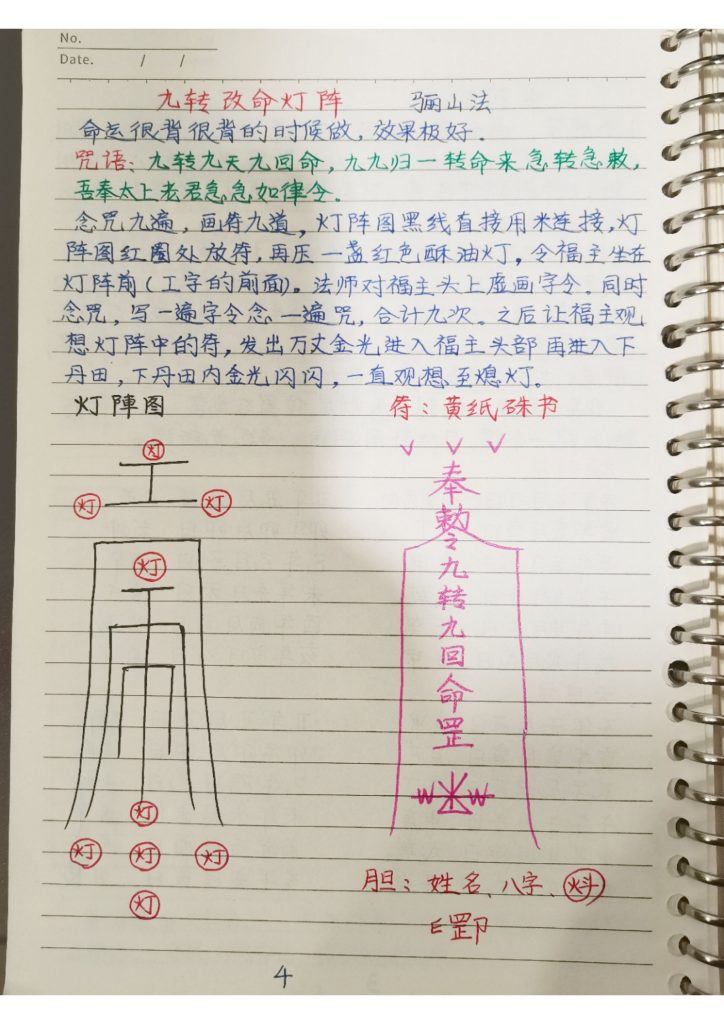 No.
Date. / /
九转改命灯阵 骊山法
命运很背很背的时候做，效果极好.
咒语：九转九天九回命，九九归一转命来急转急敕，
吾奉太上老君急急如律令.
念咒九遍，画符九道，灯阵图黑线直接用米连接，灯
阵图红圈处放符，再压一盏红色酥油灯。令福主坐在
灯阵前(工字的前面)。法师对福主头上虚画字令.同时
念咒，写一遍字令念一遍咒，合计九次。之后让福主观
想灯阵中的符，发出万丈金光进入福主头部再进入下
丹田，下丹田内金光闪闪，一直观想至熄灯。
灯陣图 符：黄纸硃书
灯
灯 灯
灯
灯
灯 灯 灯
灯
奉
敕
令
九
转
九
回
命
罡
胆：姓名、八字、
4